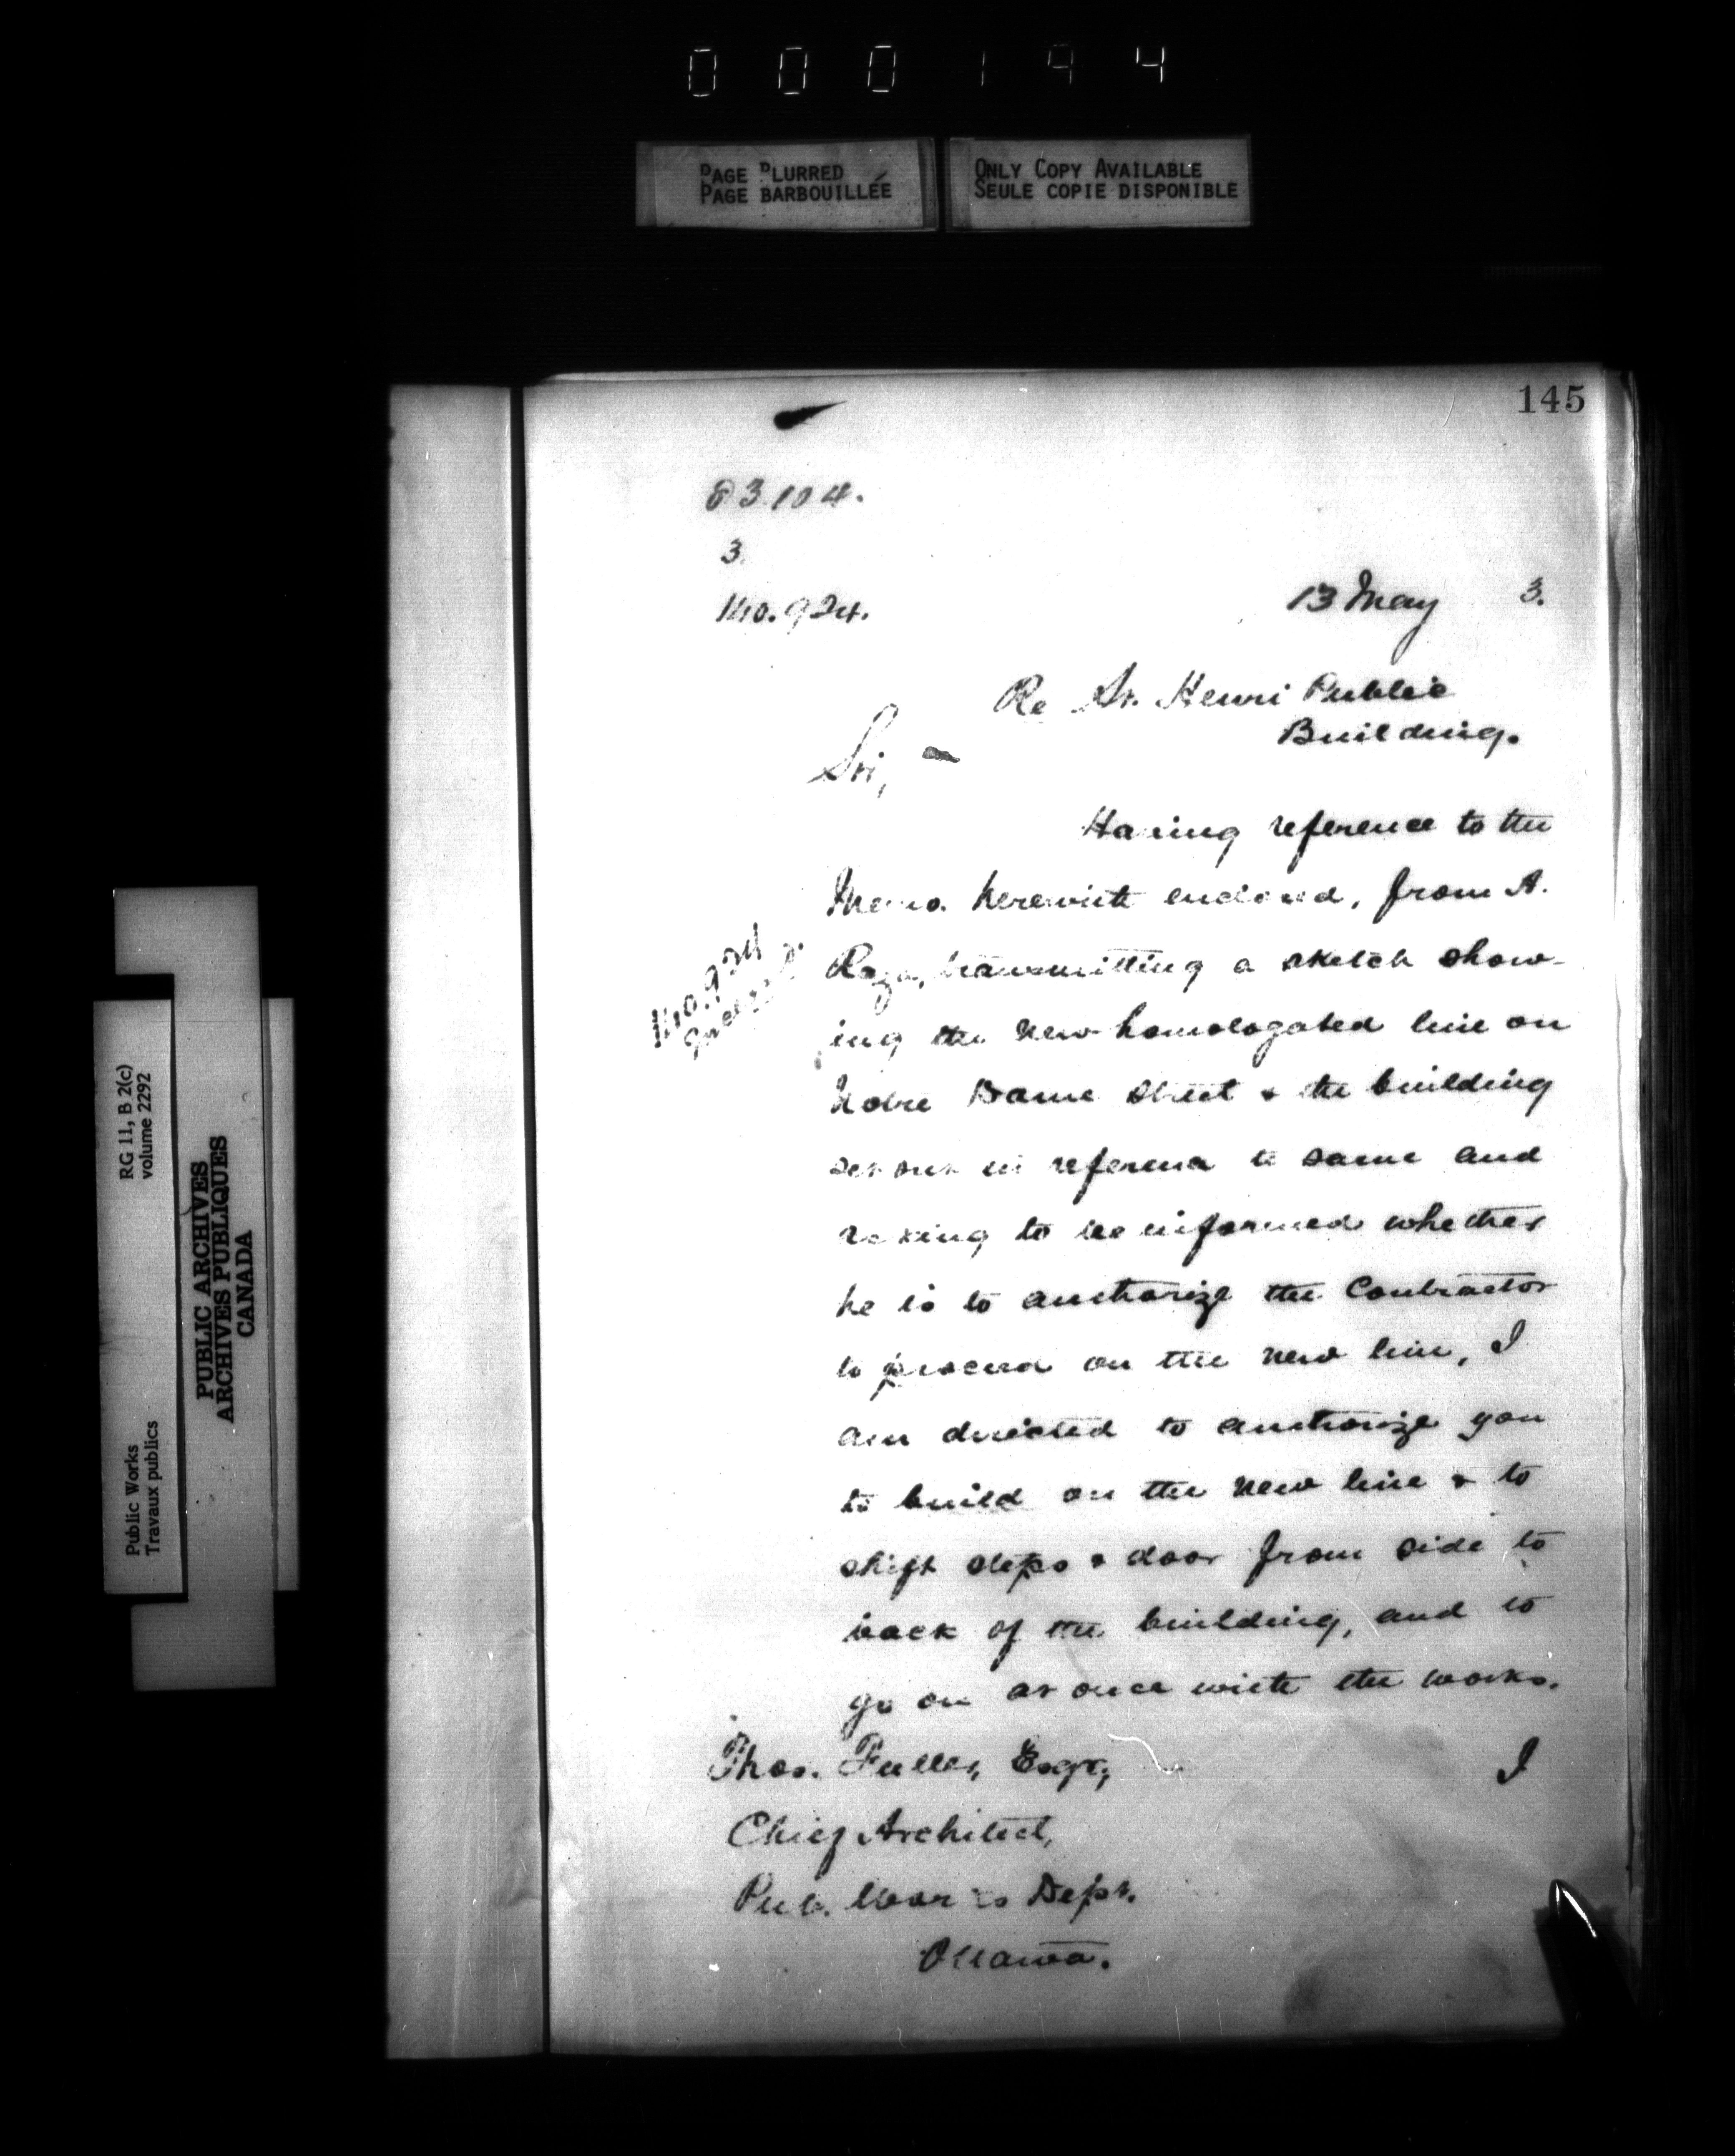 000194
PAGE BLURRED
PAGE BARBOUILLÉE
ONLY COPY AVAILABLE
SEULE COPIE DISPONIBLE
145
83.104.
3.
140.924.
13 May 3.
Re St. Henri Public
Building.
Sir, -
Having reference to the
Memo. herewith enclosed, from A.
Raza, transmitting a sketch show-
ing the new homologated line on
Notre Dame Street & the building
set out in reference to same and
asking to be informed whether
he is to authorize the Contractor
to proceed on the new line, I
am directed to authorize you
to build on the new line & to
shift steps & door from side to
back of the building, and to
go on at once with the works.
140.924
Enclosed.
I
Thos. Fuller, Esqr.,
Chief Architect,
Pub. Works Dept.
Ottawa.
RG 11, B 2(c)
volume 2292
Public Works
Travaux publics
PUBLIC ARCHIVES
ARCHIVES PUBLIQUES
CANADA